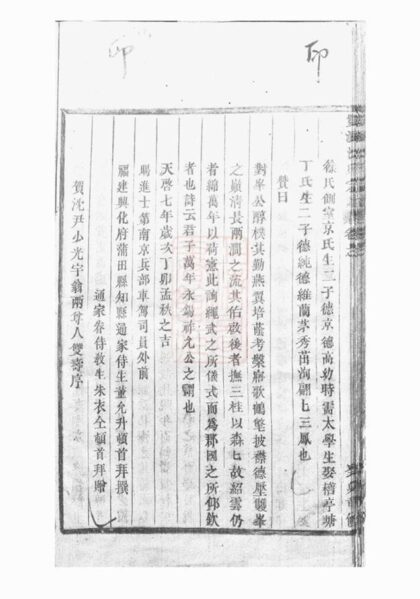 印
印
徐氏側室京氏生二子德京德高幼時需太學生娶稽亭塘
丁氏生二子德純德維蘭茅秀茁洵翩七三鳳也
贊曰
對峯公醇樸其勤燕翼培蔭考槃寤歌鶴氅披襟德星襲峯
之嶺清長兩澗之流其佑啟後者撫三桂以森七故紹雲仍
者綿萬年以猗憲此詢繩武之所儀式而為郡國之所仰欽
者也詩云君子萬年永錫祚允公之謂也
天啓七年歲次丁卯孟秋之吉
賜進士第南京兵部車駕司員外前
福建興化府蒲田縣知縣通家侍生董允升頓首拜撰
通家眷侍教生朱衣仝頓首拜贈
賀沈尹少光宇翁兩尊人雙壽序